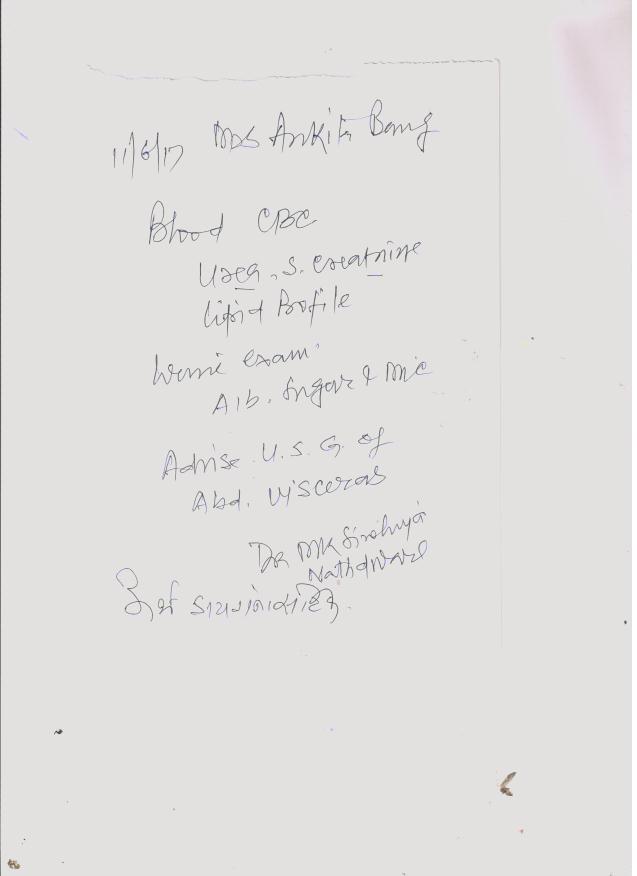 11/6/17 Mrs Ankita Bang
Blood CBC
Urea, S. creatnine
Lipid Profile
Urine exam
Alb. Sugar & Mic
Advise U.S.G. of
Abd. Visceras
Dr MK Sirohiya
Nathdwara